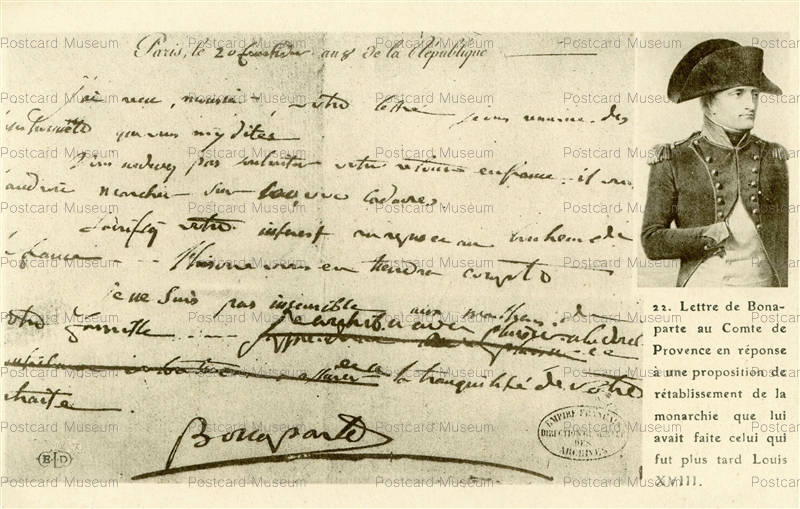 Paris, le 20 fructidor an 8 de la République
J'ai reçu, monsieur, votre lettre je vous remercie des
honnêtetés que vous m'y dites
Vous ne devez pas souhaiter votre retour en france. il vous
faudroit marcher sur cadavres
Sacrifiez votre interest au repos et au bonheur de
la france... l'histoire vous en tiendra compte
Je ne suis pas insensible aux malheurs de
votre famille
a la tranquilité de votre
retraite.
Bonaparte
EMPIRE FRANÇAIS
DIRECTION GÉNÉRALE
DES
ARCHIVES
E D
22. Lettre de Bona-
parte au Comte de
Provence en réponse
à une proposition de
rétablissement de la
monarchie que lui
avait faite celui qui
fut plus tard Louis
XVIII.
Postcard Museum